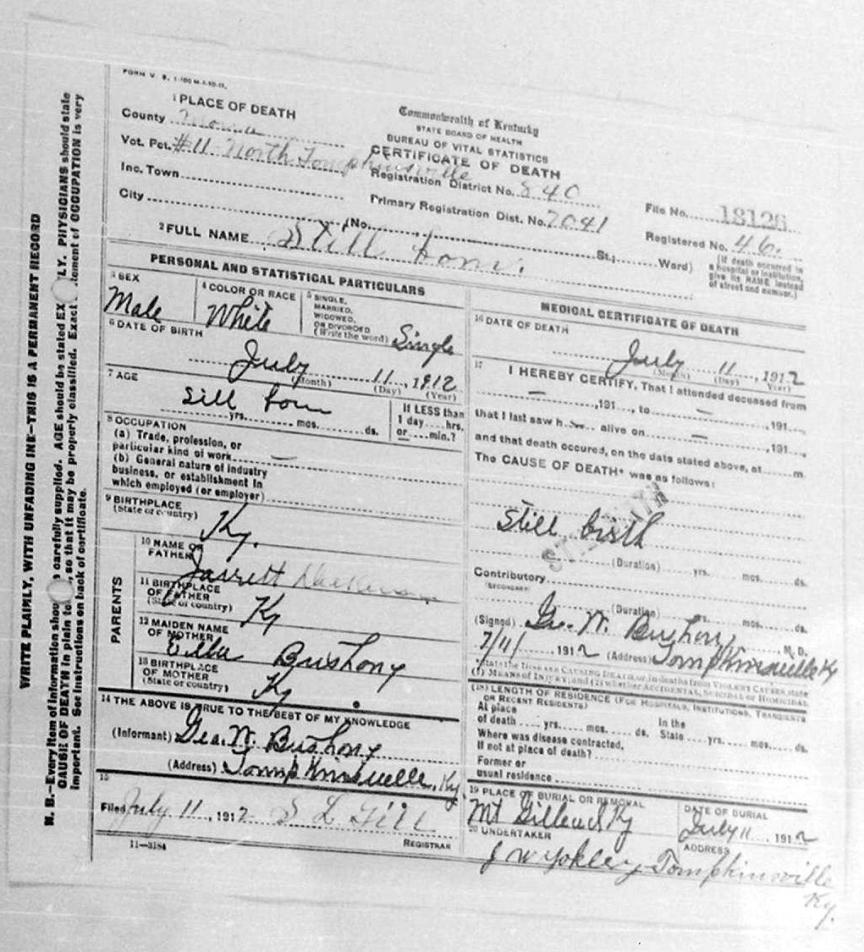 FORM V. S. 1-
1 PLACE OF DEATH
County
Vot. Pct. #11 North Tompkinsville
Inc. Town
City
Commonwealth of Kentucky
STATE BOARD OF HEALTH
BUREAU OF VITAL STATISTICS
CERTIFICATE OF DEATH
Registration District No. 840
Primary Registration Dist. No. 7041
File No. 18126
Registered No. 46.
(No. St.; Ward)
(If death occurred in a hospital or institution, give its NAME instead of street and number.)
2 FULL NAME Still born.
PERSONAL AND STATISTICAL PARTICULARS
3 SEX
Male
4 COLOR OR RACE
White
5 SINGLE,
MARRIED,
WIDOWED,
OR DIVORCED
(Write the word) Single
6 DATE OF BIRTH
July 11, 1912
(Month) (Day) (Year)
7 AGE
Sill born
yrs. mos. ds.
If LESS than
1 day hrs.
or — min.?
8 OCCUPATION
(a) Trade, profession, or
particular kind of work —
(b) General nature of industry
business, or establishment in
which employed (or employer)
9 BIRTHPLACE
(State or country)
Ky.
PARENTS
10 NAME OF
FATHER
Jarrett
11 BIRTHPLACE
OF FATHER
(State or country)
Ky
12 MAIDEN NAME
OF MOTHER
Bushong
13 BIRTHPLACE
OF MOTHER
(State or country)
Ky
14 THE ABOVE IS TRUE TO THE BEST OF MY KNOWLEDGE
(Informant) Geo. W. Bushong
(Address) Tompkinsville, Ky
15
Filed July 11, 1912 S L Gill
REGISTRAR
11—3184
MEDICAL CERTIFICATE OF DEATH
16 DATE OF DEATH
July 11, 1912
(Month) (Day) (Year)
17
I HEREBY CERTIFY, That I attended deceased from
— ,191 , to — ,191
that I last saw h alive on — ,191
and that death occured, on the date stated above, at m.
The CAUSE OF DEATH* was as follows:
Still birth
(Duration) yrs. mos. ds.
Contributory
(SECONDARY)
(Duration) yrs. mos. ds.
(Signed) Geo. W. Bushong, M. D.
7/11/ 1912 (Address) Tompkinsville Ky
*State the DISEASE CAUSING DEATH, or, in deaths from VIOLENT CAUSES, state
(1) MEANS OF INJURY; and (2) whether ACCIDENTAL, SUICIDAL or HOMICIDAL
(18) LENGTH OF RESIDENCE (FOR HOSPITALS, INSTITUTIONS, TRANSIENTS
OR RECENT RESIDENTS)
At place In the
of death yrs. mos. ds. State yrs. mos. ds.
Where was disease contracted,
If not at place of death?
Former or
usual residence
19 PLACE OF BURIAL OR REMOVAL
Mt Gillead Ky
DATE OF BURIAL
July 11, 1912
20 UNDERTAKER
J W Yokley
ADDRESS
Tompkinsville
Ky.
WRITE PLAINLY, WITH UNFADING INK—THIS IS A PERMANENT RECORD
N. B.—Every item of information should carefully supplied. AGE should be stated EX LY. PHYSICIANS should state
CAUSE OF DEATH in plain so that it may be properly classified. Exact tement of OCCUPATION is very
important. See instructions on back of certificate.